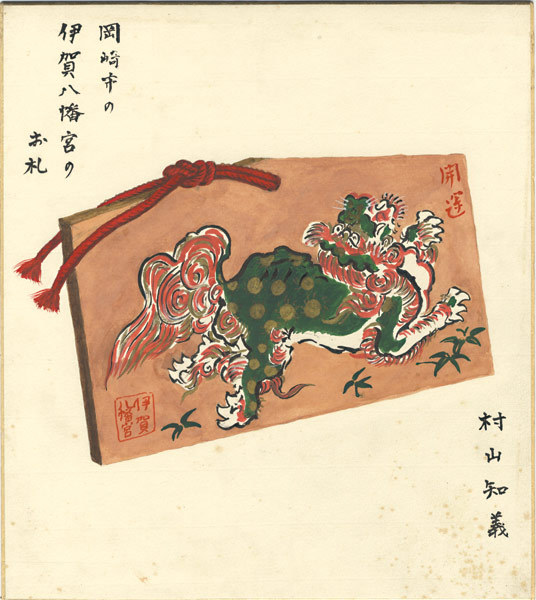 岡崎市の
伊賀八幡宮の
お札
開運
伊賀
八幡宮
村山知義